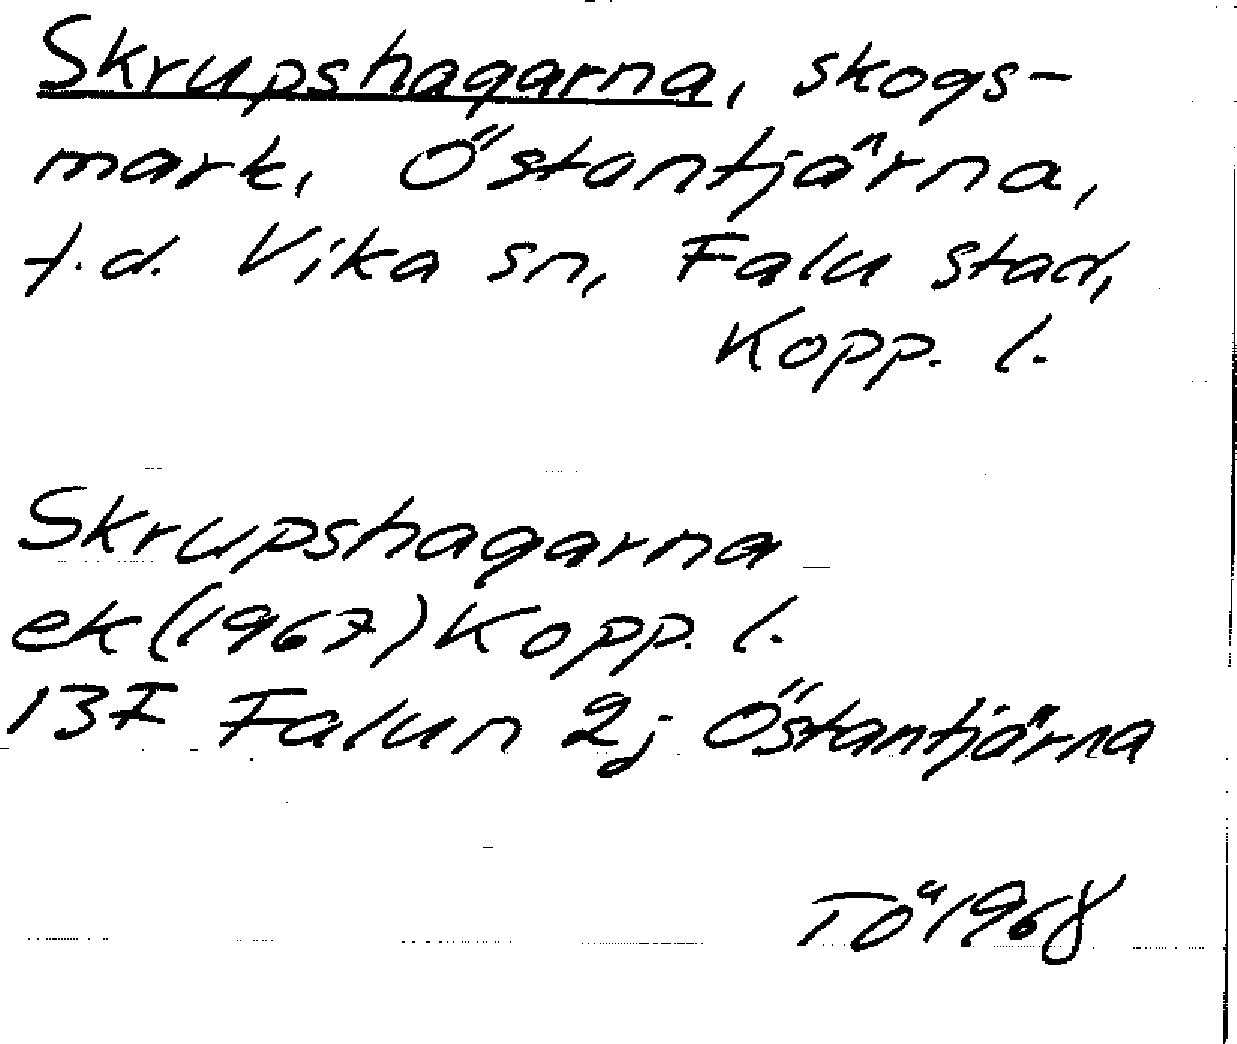 Skrupshagarna, skogs-
mark, Östantjärna,
f.d. Vika sn, Falu stad,
Kopp. l.
Skrupshagarna
ek (1967) Kopp. l.
13F Falun 2j Östantjärna
TÖ 1968